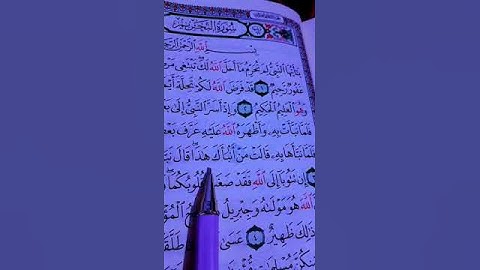 سُورَةُ التَّحْرِيمِ
بِسْمِ اللَّهِ الرَّحْمَٰنِ الرَّحِيمِ
يَا أَيُّهَا النَّبِيُّ لِمَ تُحَرِّمُ مَا أَحَلَّ اللَّهُ لَكَ تَبْتَغِي
غَفُورٌ رَّحِيمٌ ١ قَدْ فَرَضَ اللَّهُ لَكُمْ تَحِلَّةَ
وَهُوَ الْعَلِيمُ الْحَكِيمُ ٢ وَإِذْ أَسَرَّ النَّبِيُّ إِلَىٰ
فَلَمَّا نَبَّأَتْ بِهِ وَأَظْهَرَهُ اللَّهُ عَلَيْهِ عَرَّفَ
فَلَمَّا نَبَّأَهَا بِهِ قَالَتْ مَنْ أَنبَأَكَ هَٰذَا قَالَ
إِن تَتُوبَا إِلَى اللَّهِ فَقَدْ صَغَتْ قُلُوبُكُمَا
اللَّهَ هُوَ مَوْلَاهُ وَجِبْرِيلُ
ذَٰلِكَ ظَهِيرٌ ٤ عَسَىٰ طَلَّقَ
مُسْلِمَاتٍ